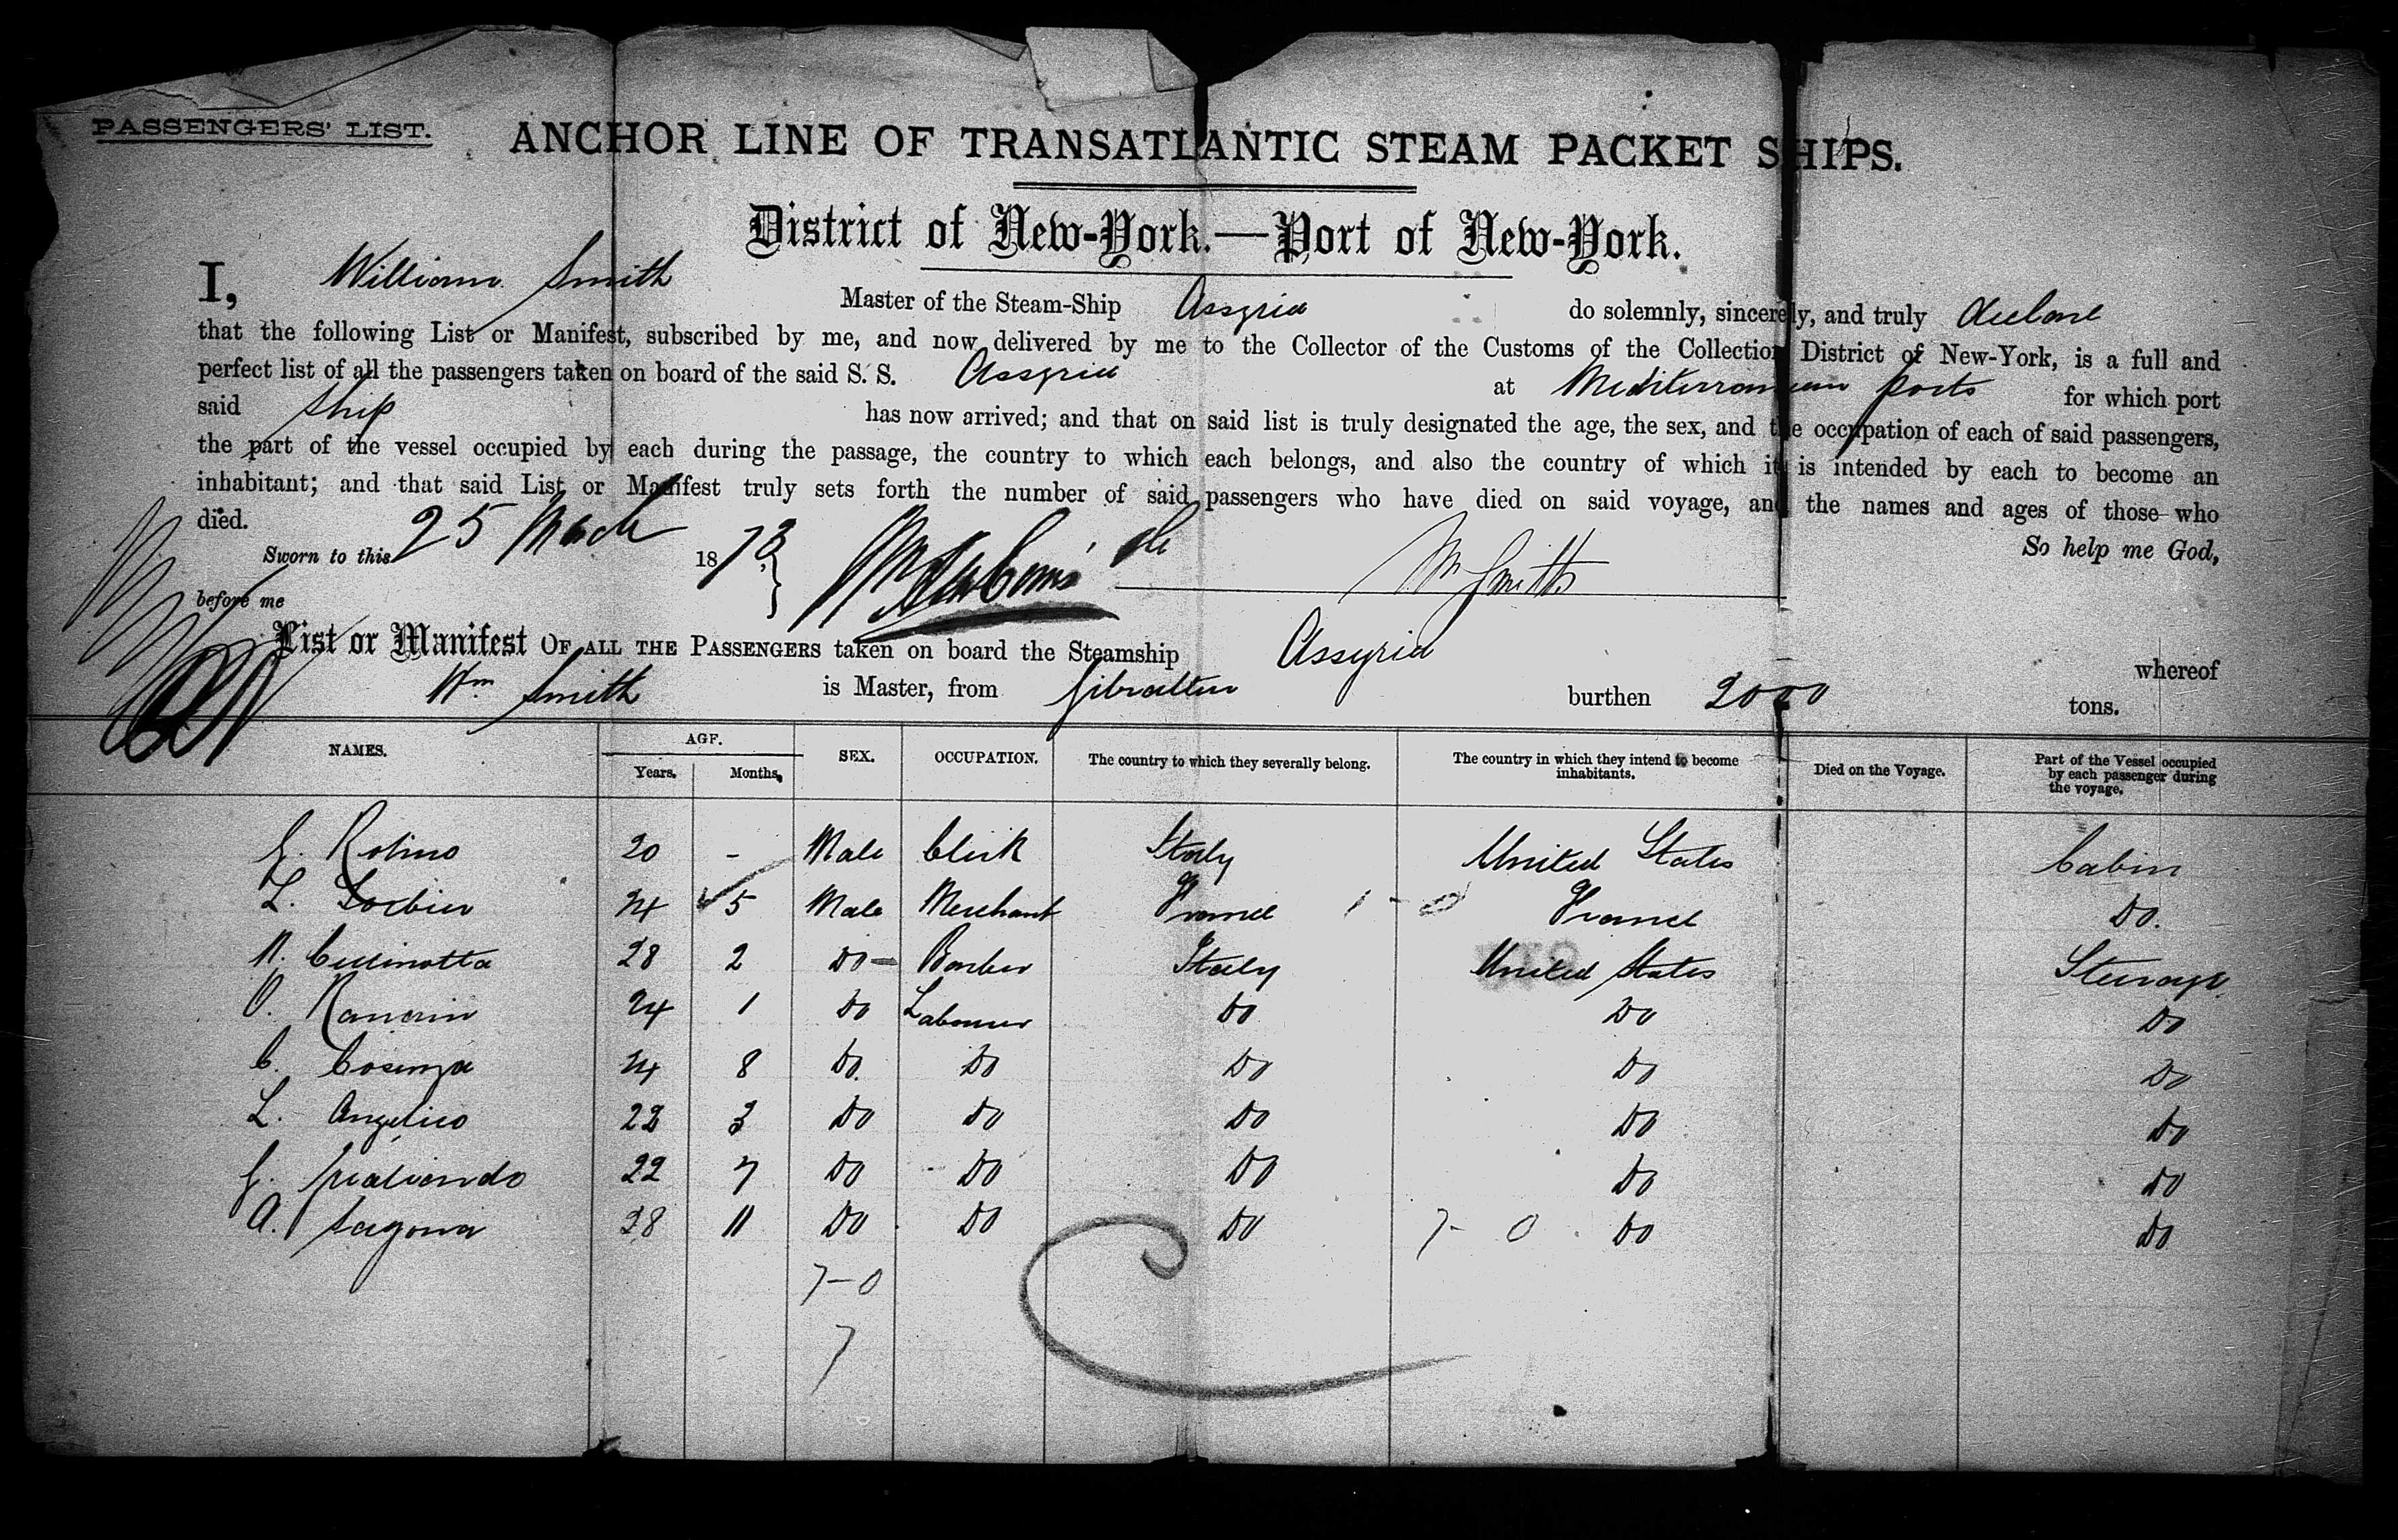 PASSENGERS' LIST.
ANCHOR LINE OF TRANSATLANTIC STEAM PACKET SHIPS.
District of New-York.—Port of New-York.
I, William Smith Master of the Steam-Ship Assyria do solemnly, sincerely, and truly declare
that the following List or Manifest, subscribed by me, and now delivered by me to the Collector of the Customs of the Collection District of New-York, is a full and
perfect list of all the passengers taken on board of the said S. S. Assyria at Mediterranean ports for which port
said ship has now arrived; and that on said list is truly designated the age, the sex, and the occupation of each of said passengers,
the part of the vessel occupied by each during the passage, the country to which each belongs, and also the country of which it is intended by each to become an
inhabitant; and that said List or Manifest truly sets forth the number of said passengers who have died on said voyage, and the names and ages of those who
died. So help me God,
Sworn to this 25 March 1873 Wm Smith
before me
List or Manifest OF ALL THE PASSENGERS taken on board the Steamship Assyria whereof
Wm Smith is Master, from Gibraltar burthen 2000 tons.
NAMES. AGE. Years. Months. SEX. OCCUPATION. The country to which they severally belong. The country in which they intend to become inhabitants. Died on the Voyage. Part of the Vessel occupied by each passenger during the voyage.
G. 20 - Male Clerk Italy United States Cabin
L. 24 5 Male Merchant France 1 - 0 France Do.
28 2 Do - Barber Italy United States Steerage
24 1 Do Labourer Do Do Do
C. Cosenza 24 8 Do. Do Do Do Do
L. Angelico 22 3 Do Do Do Do Do
G. 22 7 Do Do Do Do Do
A. Sagona 28 11 Do Do Do 7- 0 Do Do
7-0
7